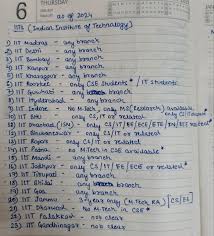 6
THURSDAY
as of 2024
IITs (Indian Institute of Technology)
1) IIT Madras – any branch
2) IIT Delhi – any branch
3) IIT Bombay – any branch
4) IIT Kanpur – any branch
5) IIT Kharagpur – any branch
6) IIT Roorkee – only CSE students / IT students
7) IIT Guwahati – any branch
8) IIT Hyderabad – any branch
9) IIT Indore – No M.Tech, only MS (Research) available
10) IIT BHU – only CS/IT or related
11) IIT Dhanbad (ISM) – only CS/IT/
12) IIT Bhubaneswar – only CS/IT or related
13) IIT Ropar – only CS/IT or related
14) IIT Patna – no M.Tech in CSE available
15) IIT Mandi – any branch
16) IIT Jodhpur – only CS/IT/EE/ECE or related
17) IIT Tirupati – any branch
18) IIT Bhilai – any branch
19) IIT Goa – any branch
20) IIT Jammu – 3 years only (M.Tech RA) CS/EE
21) IIT Dharwad – No M.Tech in CSE
22) IIT Palakkad – not clear
23) IIT Gandhinagar – not clear